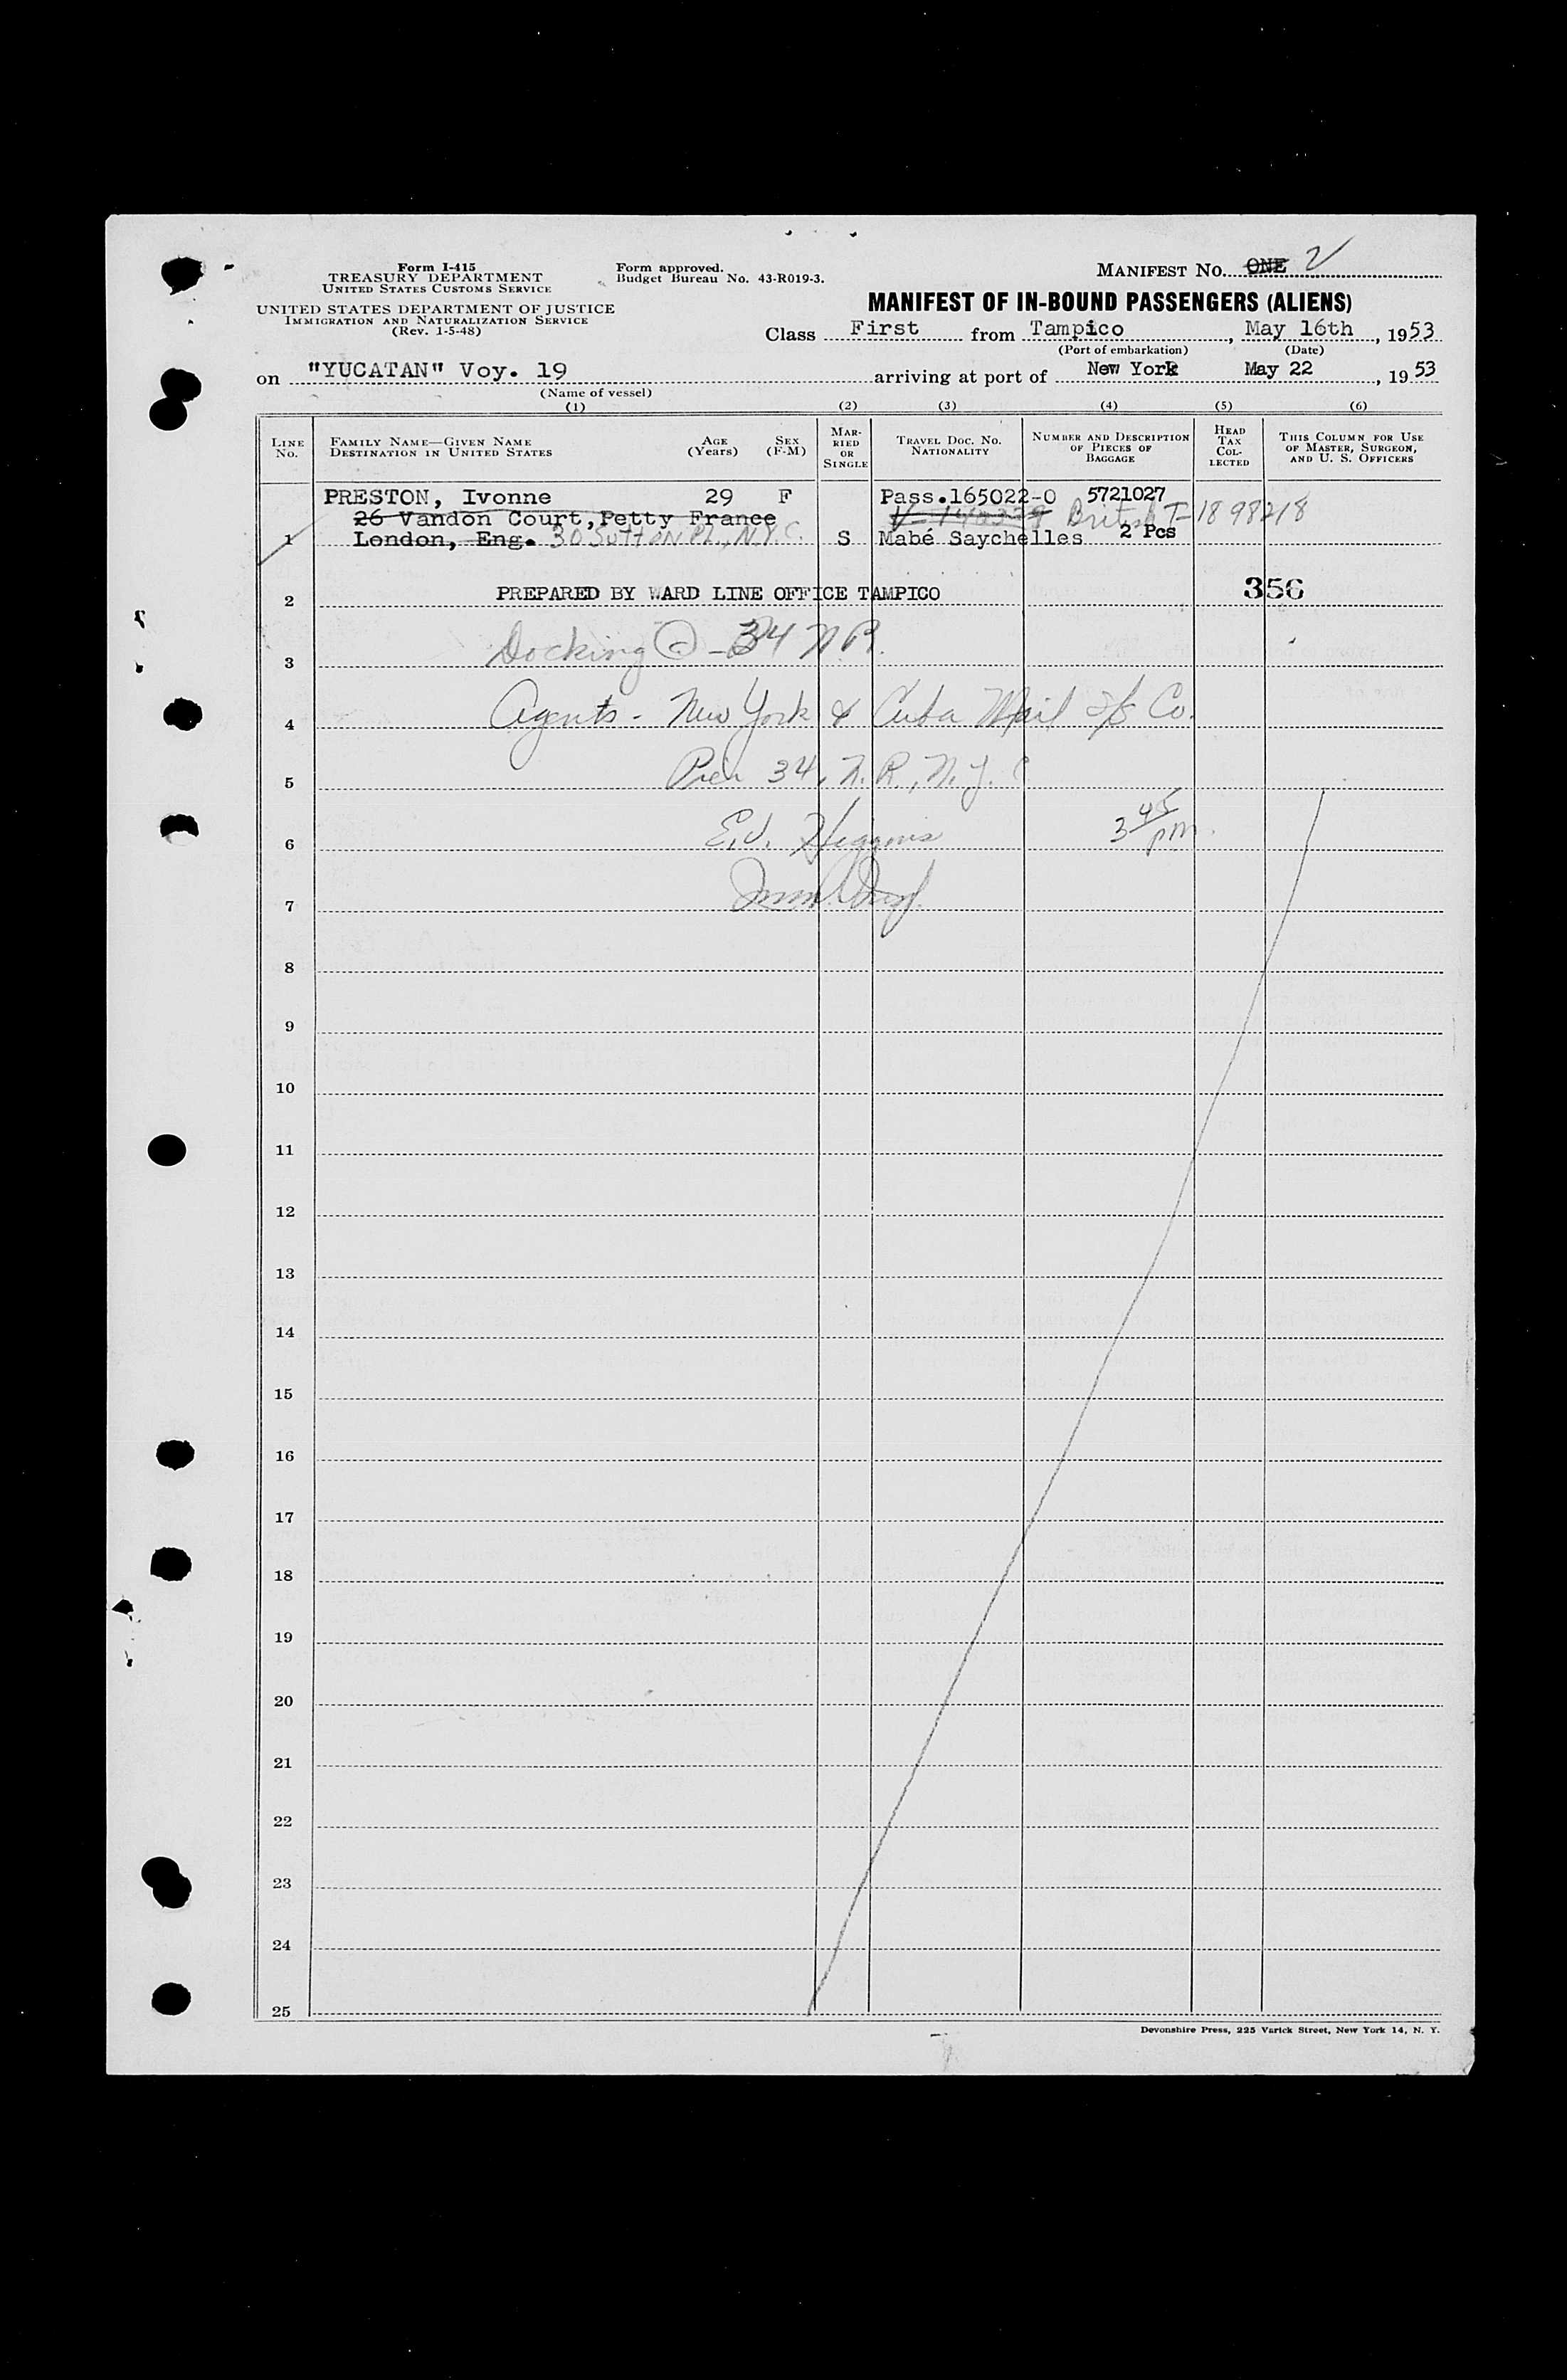 Form I-415
TREASURY DEPARTMENT
UNITED STATES CUSTOMS SERVICE
UNITED STATES DEPARTMENT OF JUSTICE
IMMIGRATION AND NATURALIZATION SERVICE
(Rev. 1-5-48)
Form approved.
Budget Bureau No. 43-R019-3.
MANIFEST NO. ONE 2
MANIFEST OF IN-BOUND PASSENGERS (ALIENS)
Class First from Tampico, May 16th, 1953
(Port of embarkation) (Date)
on "YUCATAN" Voy. 19 arriving at port of New York May 22, 1953
(Name of vessel)
(1) (2) (3) (4) (5) (6)
LINE NO.
FAMILY NAME—GIVEN NAME
DESTINATION IN UNITED STATES
AGE (Years)
SEX (F-M)
MARRIED OR SINGLE
TRAVEL DOC. NO.
NATIONALITY
NUMBER AND DESCRIPTION OF PIECES OF BAGGAGE
HEAD TAX COLLECTED
THIS COLUMN FOR USE OF MASTER, SURGEON, AND U. S. OFFICERS
PRESTON, Ivonne 29 F Pass.165022-0 5721027
26 Vandon Court, Petty France British T-1898218
1 London, Eng. 30 SUTTON PL., N.Y.C. S Mabé Saychelles 2 Pcs
2 PREPARED BY WARD LINE OFFICE TAMPICO 356
3 Docking @ 34 N.R.
4 Agents - New York & Cuba Mail S/S Co.
5 Pier 34, N.R., N.Y.C
6 E.J. Higgins 3 45 pm.
7
8
9
10
11
12
13
14
15
16
17
18
19
20
21
22
23
24
25
Devonshire Press, 225 Varick Street, New York 14, N. Y.